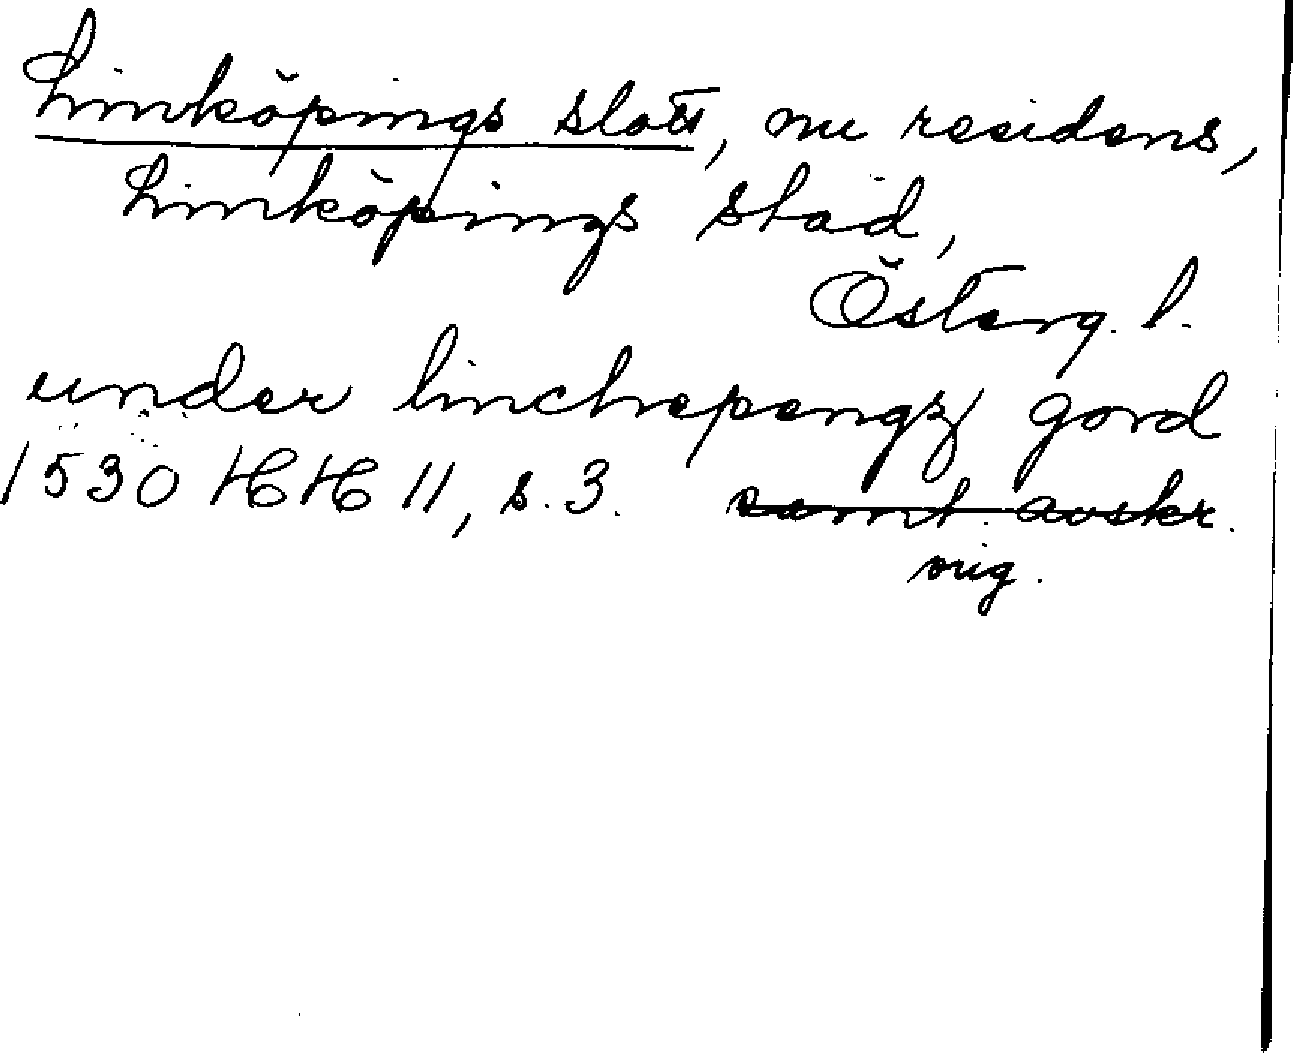 Linköpings slott, nu residens,
Linköpings stad,
Österg. l.
under linchepengz gord
1530 HH 11, s. 3. samt. avskr.
orig.